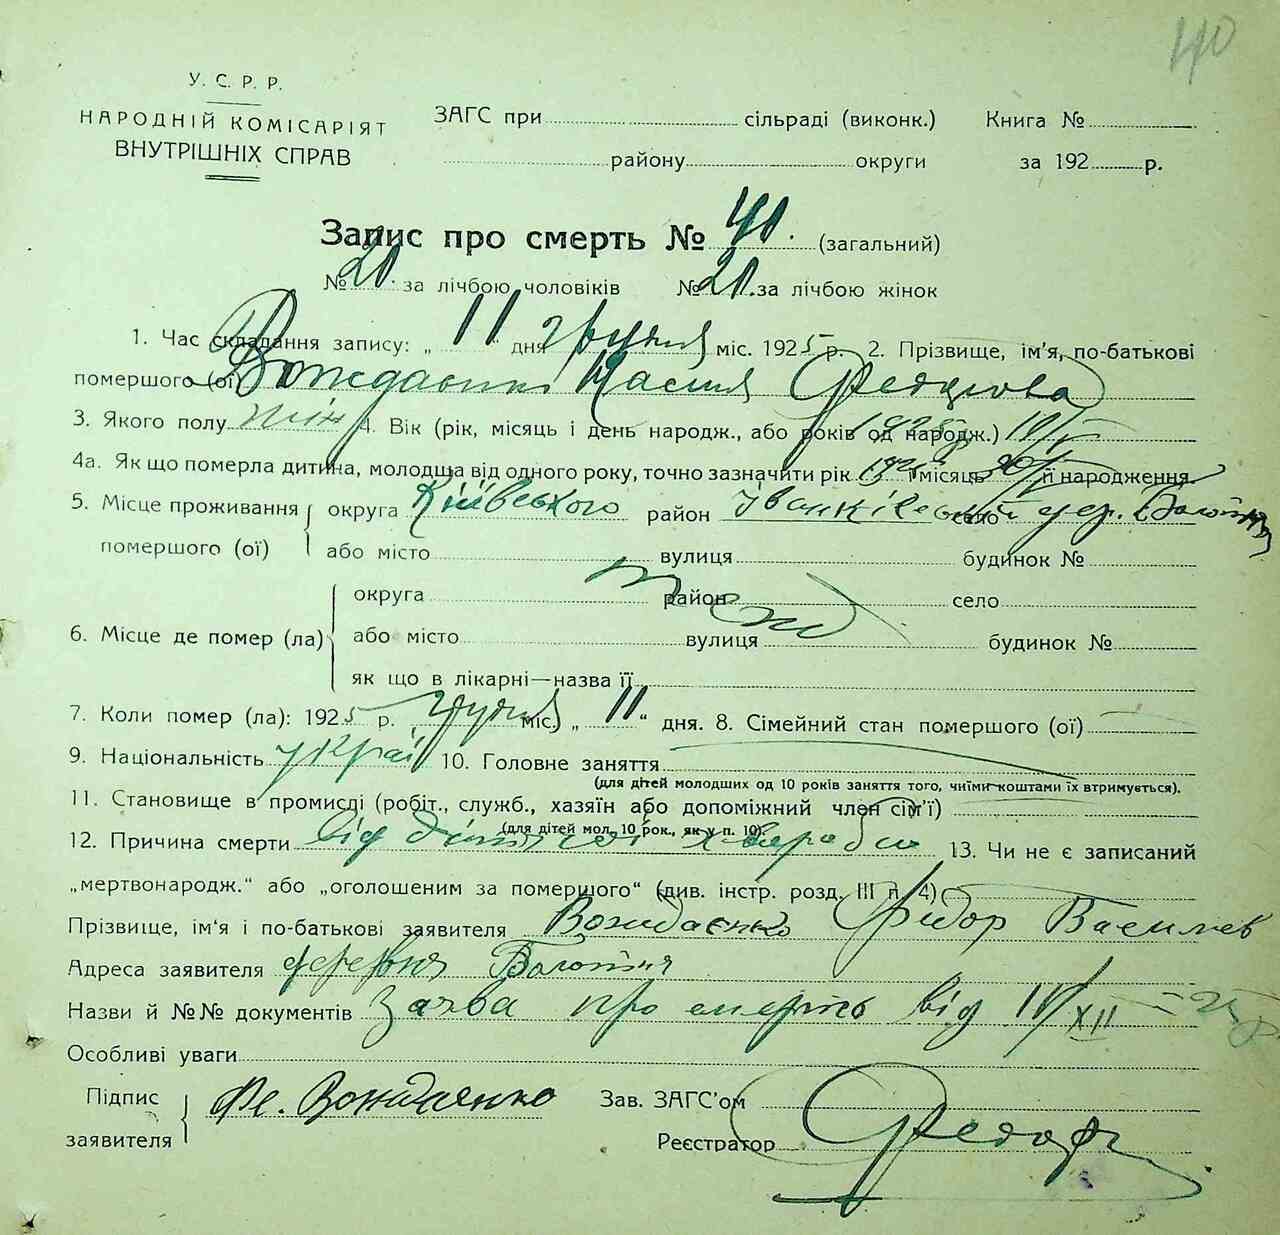 40
У. С. Р. Р.
НАРОДНІЙ КОМІСАРІЯТ
ВНУТРІШНІХ СПРАВ
ЗАГС при сільраді (виконк.) Книга №
району округи за 192 р.
Запис про смерть № 40. (загальний)
№ 20. за лічбою чоловіків № 20. за лічбою жінок
1. Час складання запису: „ 11 " дня грудня міс. 1925 р. 2. Прізвище, ім'я, по-батькові
помершого (ої) Настя Федорова
3. Якого полу жін 4. Вік (рік, місяць і день народж., або років од народж.) 1925 р.
4а. Як що померла дитина, молодша від одного року, точно зазначити рік 1925 і місяць її народження.
5. Місце проживання помершого (ої) округа Київського район Іванківський село дер. Болотня
або місто вулиця будинок №
6. Місце де помер (ла) округа район село
або місто вулиця будинок №
як що в лікарні—назва її
7. Коли помер (ла): 1925 р. грудня міс. „ 11 " дня. 8. Сімейний стан помершого (ої)
9. Національність украї 10. Головне заняття
(для дітей молодших од 10 років заняття того, чиїми коштами їх втримується).
11. Становище в промислі (робіт., служб., хазяїн або допоміжний член сім'ї)
(для дітей мол. 10 рок., як у п. 10).
12. Причина смерти від дитячої хвороби 13. Чи не є записаний
„мертвонародж." або „оголошеним за помершого" (див. інстр. розд. III п. 4)
Прізвище, ім'я і по-батькові заявителя Вождаєнко Фидор Васильев
Адреса заявителя деревня Болотня
Назви й №№ документів Заява про смерть від XII 25 р.
Особливі уваги
Підпис заявителя Фе. Вождаенко Зав. ЗАГС'ом
Реєстратор